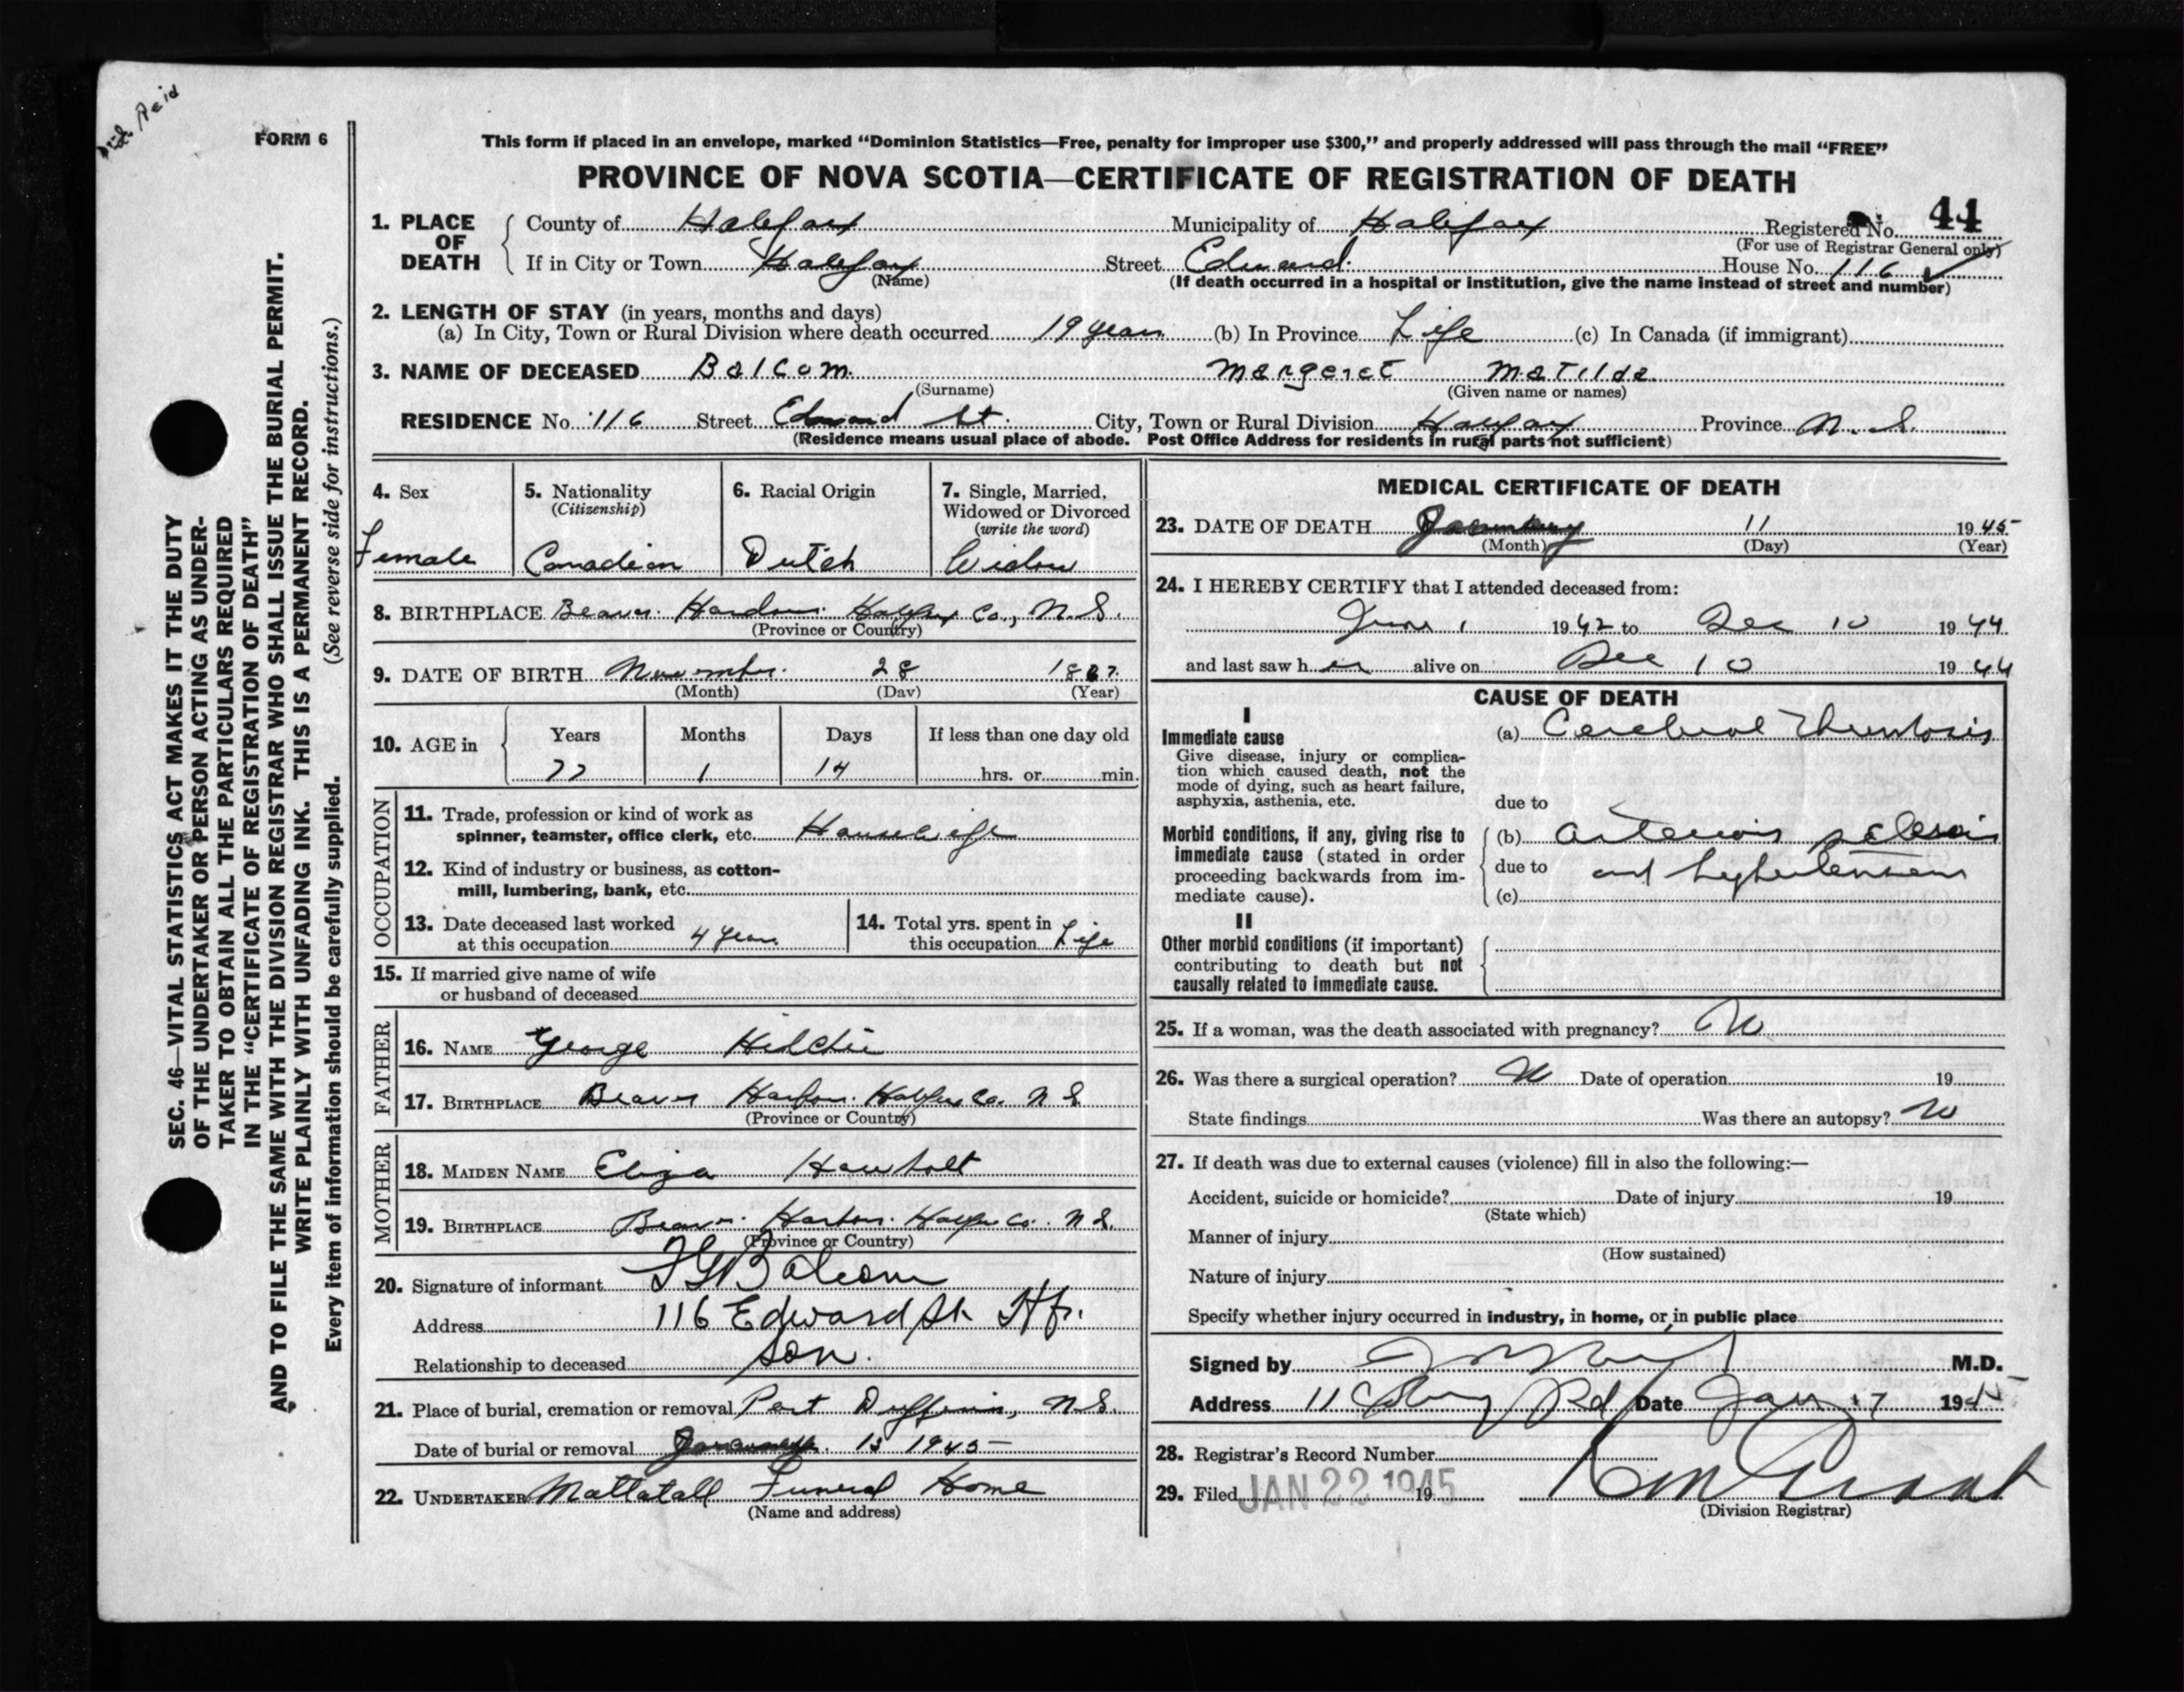 FORM 6
This form if placed in an envelope, marked “Dominion Statistics—Free, penalty for improper use $300,” and properly addressed will pass through the mail “FREE”
PROVINCE OF NOVA SCOTIA—CERTIFICATE OF REGISTRATION OF DEATH
1. PLACE OF DEATH County of Halifax Municipality of Halifax Registered No. 44
(For use of Registrar General only)
If in City or Town Halifax Street Edward House No. 116
(Name) (If death occurred in a hospital or institution, give the name instead of street and number)
2. LENGTH OF STAY (in years, months and days)
(a) In City, Town or Rural Division where death occurred 19 years (b) In Province Life (c) In Canada (if immigrant)
3. NAME OF DECEASED Balcom Margaret Matilda
(Surname) (Given name or names)
RESIDENCE No. 116 Street Edward St. City, Town or Rural Division Halifax Province N. S.
(Residence means usual place of abode. Post Office Address for residents in rural parts not sufficient)
4. Sex 5. Nationality (Citizenship) 6. Racial Origin 7. Single, Married, Widowed or Divorced (write the word)
Female Canadian Dutch Widow
8. BIRTHPLACE Beaver Harbour Halifax Co., N.S.
(Province or Country)
9. DATE OF BIRTH November 28 1867
(Month) (Day) (Year)
10. AGE in Years Months Days If less than one day old
77 1 14 hrs. or min.
OCCUPATION
11. Trade, profession or kind of work as
spinner, teamster, office clerk, etc. Housewife
12. Kind of industry or business, as cotton-
mill, lumbering, bank, etc.
13. Date deceased last worked
at this occupation 4 years
14. Total yrs. spent in
this occupation Life
15. If married give name of wife
or husband of deceased
FATHER
16. NAME George Hilchie
17. BIRTHPLACE Beaver Harbour Halifax Co. N S
(Province or Country)
MOTHER
18. MAIDEN NAME Eliza
19. BIRTHPLACE Beaver Harbour Halifax Co. N S.
(Province or Country)
20. Signature of informant Balcom
Address 116 Edward St. Hfx.
Relationship to deceased son.
21. Place of burial, cremation or removal Port Dufferin, N.S.
Date of burial or removal January 13 1945
22. UNDERTAKER Mattatall Funeral Home
(Name and address)
MEDICAL CERTIFICATE OF DEATH
23. DATE OF DEATH January 11 1945
(Month) (Day) (Year)
24. I HEREBY CERTIFY that I attended deceased from:
June 1 1942 to Dec 10 1944
and last saw her alive on Dec 10 1944
CAUSE OF DEATH
I
Immediate cause (a) Cerebral Thrombosis
Give disease, injury or complica-
tion which caused death, not the
mode of dying, such as heart failure,
asphyxia, asthenia, etc.
due to
Morbid conditions, if any, giving rise to (b) Arterio sclerosis
immediate cause (stated in order
proceeding backwards from im- due to and hypertension
mediate cause). (c)
II
Other morbid conditions (if important)
contributing to death but not
causally related to immediate cause.
25. If a woman, was the death associated with pregnancy? No
26. Was there a surgical operation? No Date of operation 19
State findings Was there an autopsy? No
27. If death was due to external causes (violence) fill in also the following:—
Accident, suicide or homicide? Date of injury 19
(State which)
Manner of injury
(How sustained)
Nature of injury
Specify whether injury occurred in industry, in home, or in public place
Signed by M.D.
Address 11 Coburg Rd Date Jan 17 1945
28. Registrar's Record Number
29. Filed JAN 22 1945 19
(Division Registrar)
SEC. 46—VITAL STATISTICS ACT MAKES IT THE DUTY
OF THE UNDERTAKER OR PERSON ACTING AS UNDER-
TAKER TO OBTAIN ALL THE PARTICULARS REQUIRED
IN THE “CERTIFICATE OF REGISTRATION OF DEATH”
AND TO FILE THE SAME WITH THE DIVISION REGISTRAR WHO SHALL ISSUE THE BURIAL PERMIT.
WRITE PLAINLY WITH UNFADING INK. THIS IS A PERMANENT RECORD.
Every item of information should be carefully supplied. (See reverse side for instructions.)